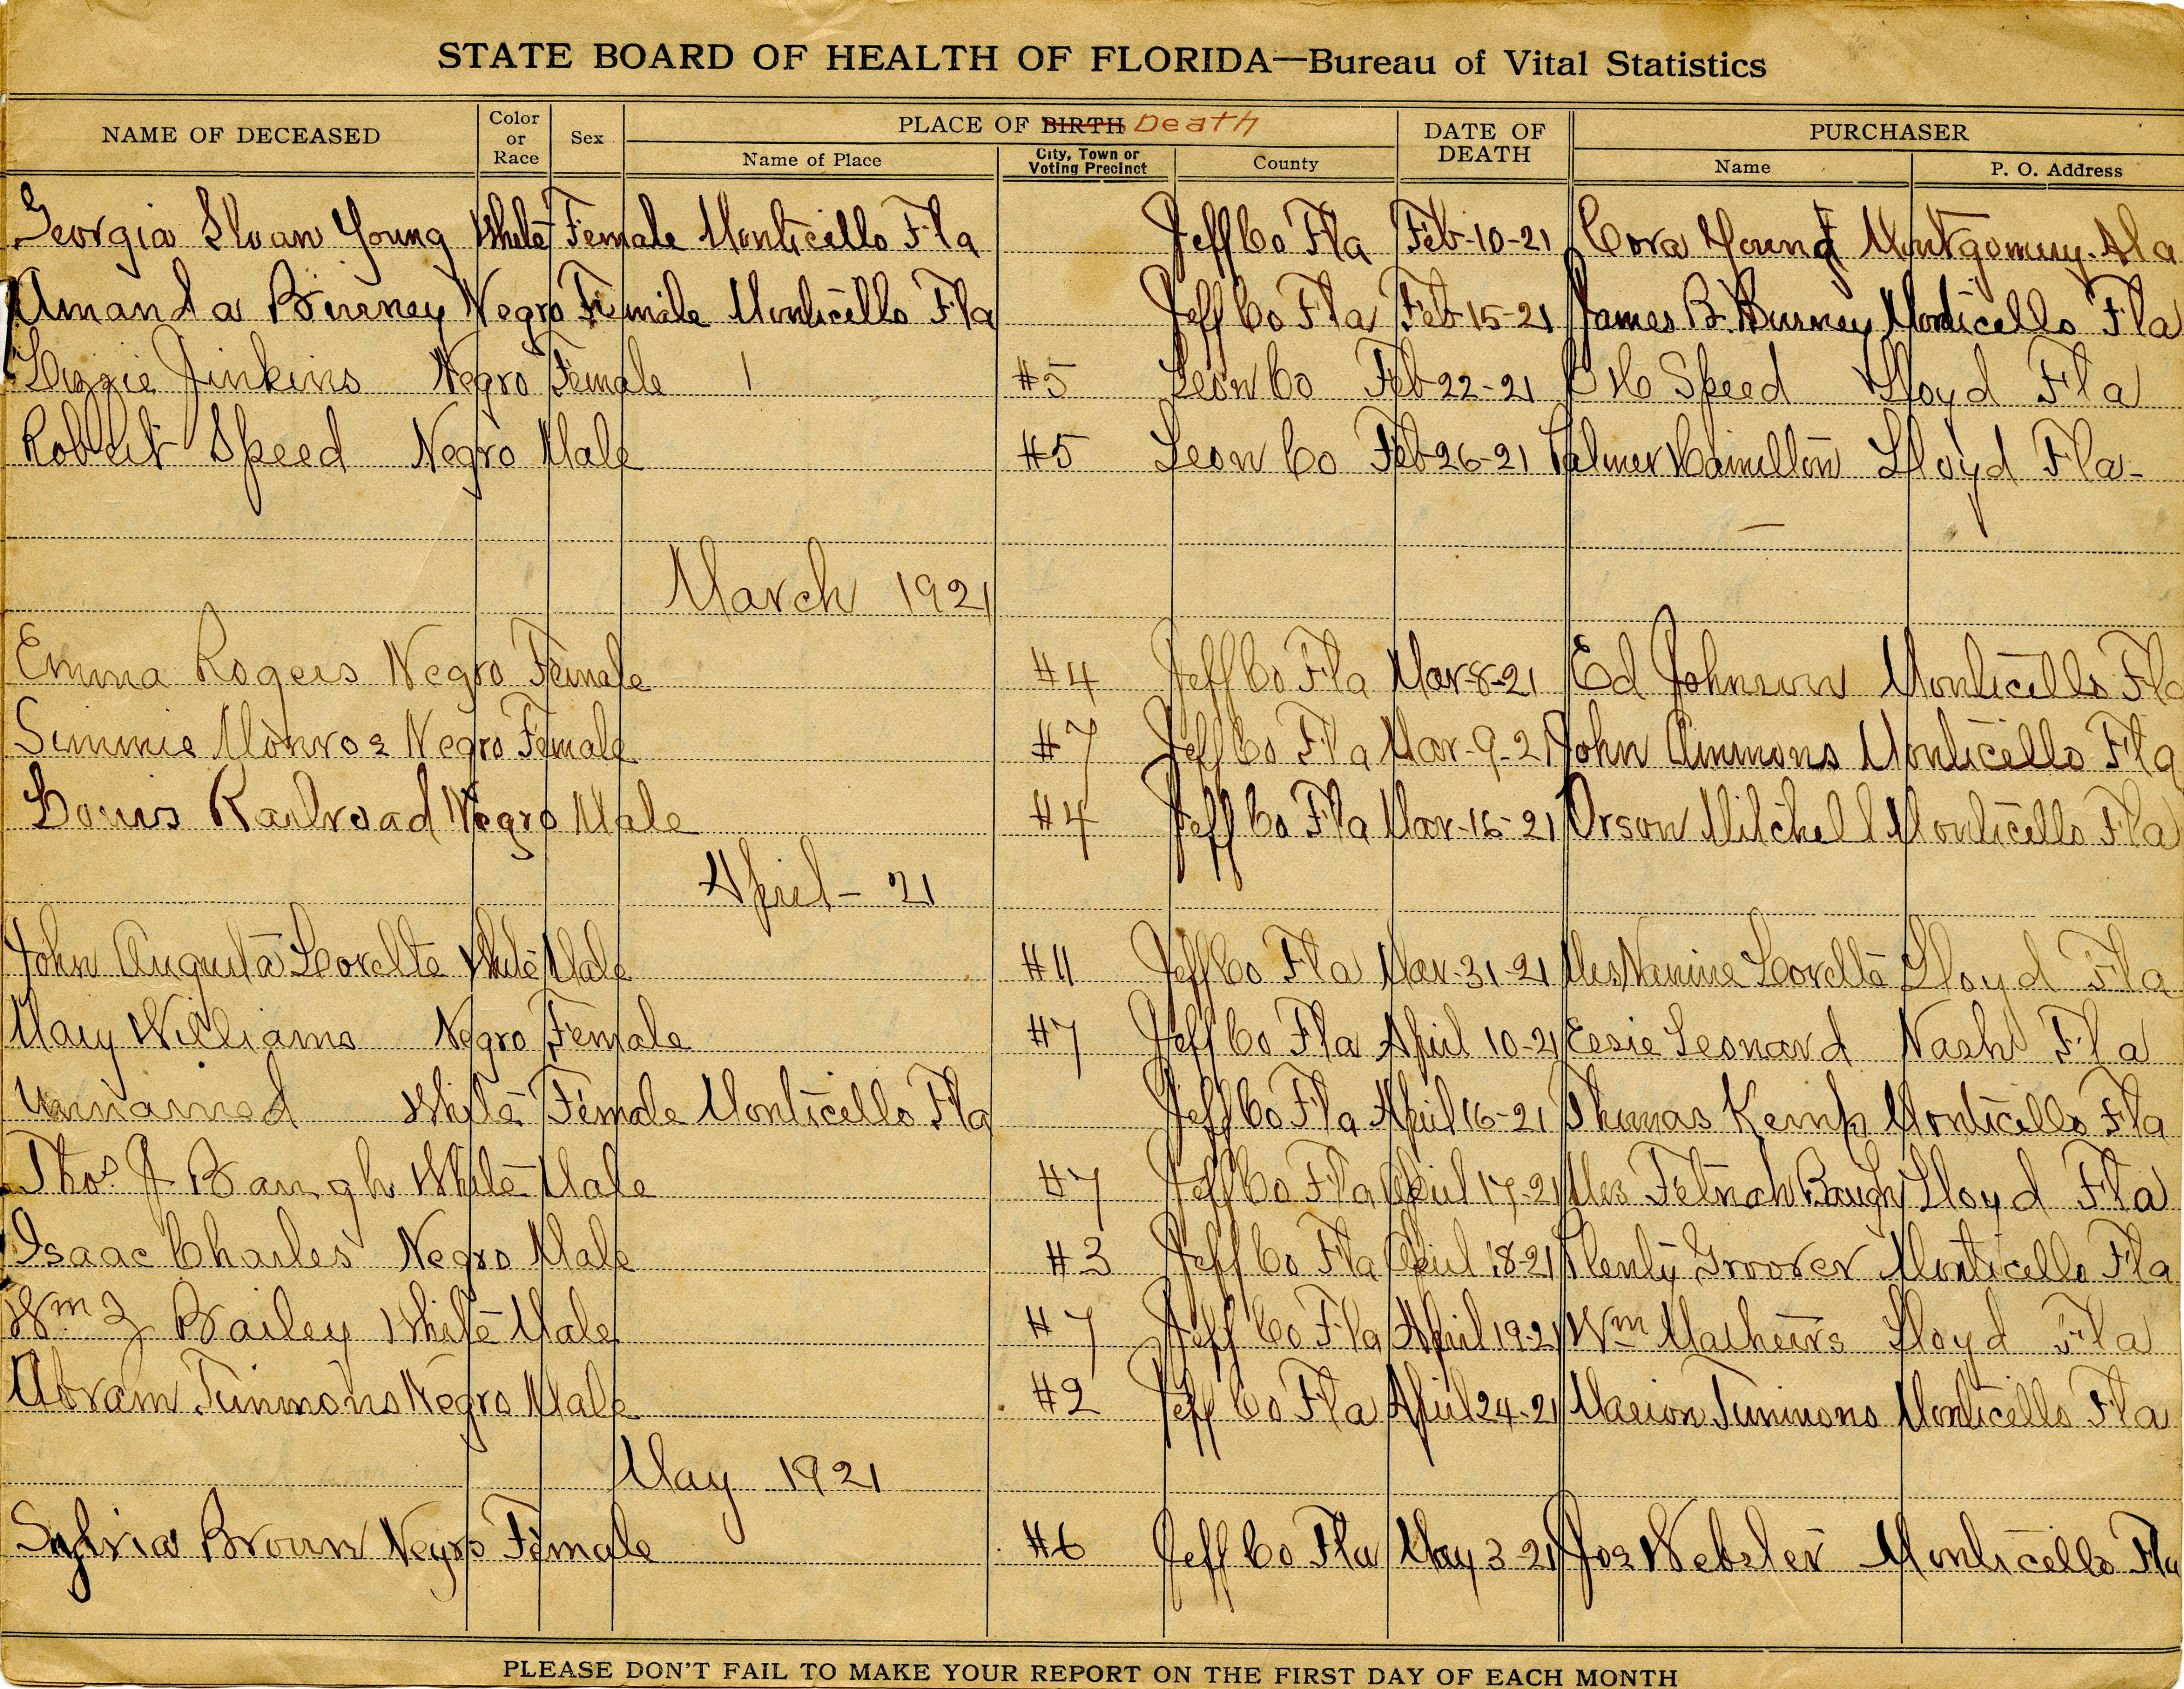 STATE BOARD OF HEALTH OF FLORIDA—Bureau of Vital Statistics
NAME OF DECEASED Color or Race Sex PLACE OF BIRTH Death DATE OF DEATH PURCHASER
Name of Place City, Town or Voting Precinct County Name P. O. Address
Georgia Sloan Young White Female Monticello Fla Jeff Co Fla Feb-10-21 Cora Young Montgomery. Ala
Amanda Burney Negro Female Monticello Fla Jeff Co Fla Feb 15-21 James B. Burney Monticello Fla
Lizzie Jinkins Negro Female #5 Leon Co Feb 22-21 Speed Lloyd Fla
Robert Speed Negro Male #5 Leon Co Feb 26-21 Palmer Hamilton Lloyd Fla-
March 1921
Emma Rogers Negro Female #4 Jeff Co Fla Mar-8-21 Ed Johnson Monticello Fla
Simmie Monroe Negro Female #7 Jeff Co Fla Mar-9-21 John Ammons Monticello Fla
Louis Railroad Negro Male #4 Jeff Co Fla Mar-16-21 Orson Mitchell Monticello Fla
April - 21
John Augusta Lovelte White Male #11 Jeff Co Fla Mar-31-21 Mrs Nannie Lovelte Lloyd Fla
Mary Williams Negro Female #7 Jeff Co Fla April 10-21 Essie Leonard Nash Fla
Unnamed White Female Monticello Fla Jeff Co Fla April 16-21 Thomas Kemp Monticello Fla
Thos. J Baugh White Male #7 Jeff Co Fla April 17-21 Mrs Baugh Lloyd Fla
Isaac Charles Negro Male #3 Jeff Co Fla April 18-21 Plenty Groover Monticello Fla
Wm Z Bailey White Male #7 Jeff Co Fla April 19-21 Wm Mathews Lloyd Fla
Abram Timmons Negro Male #2 Jeff Co Fla April 24-21 Marion Timmons Monticello Fla
May 1921
Sylvia Brown Negro Female #6 Jeff Co Fla May 3-21 Joe Webster Monticello Fla
PLEASE DON'T FAIL TO MAKE YOUR REPORT ON THE FIRST DAY OF EACH MONTH